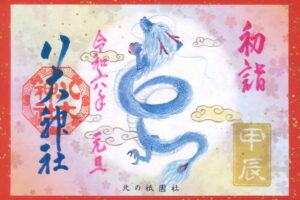 初詣
甲辰
令和六年 元旦
神社
北の祇園社